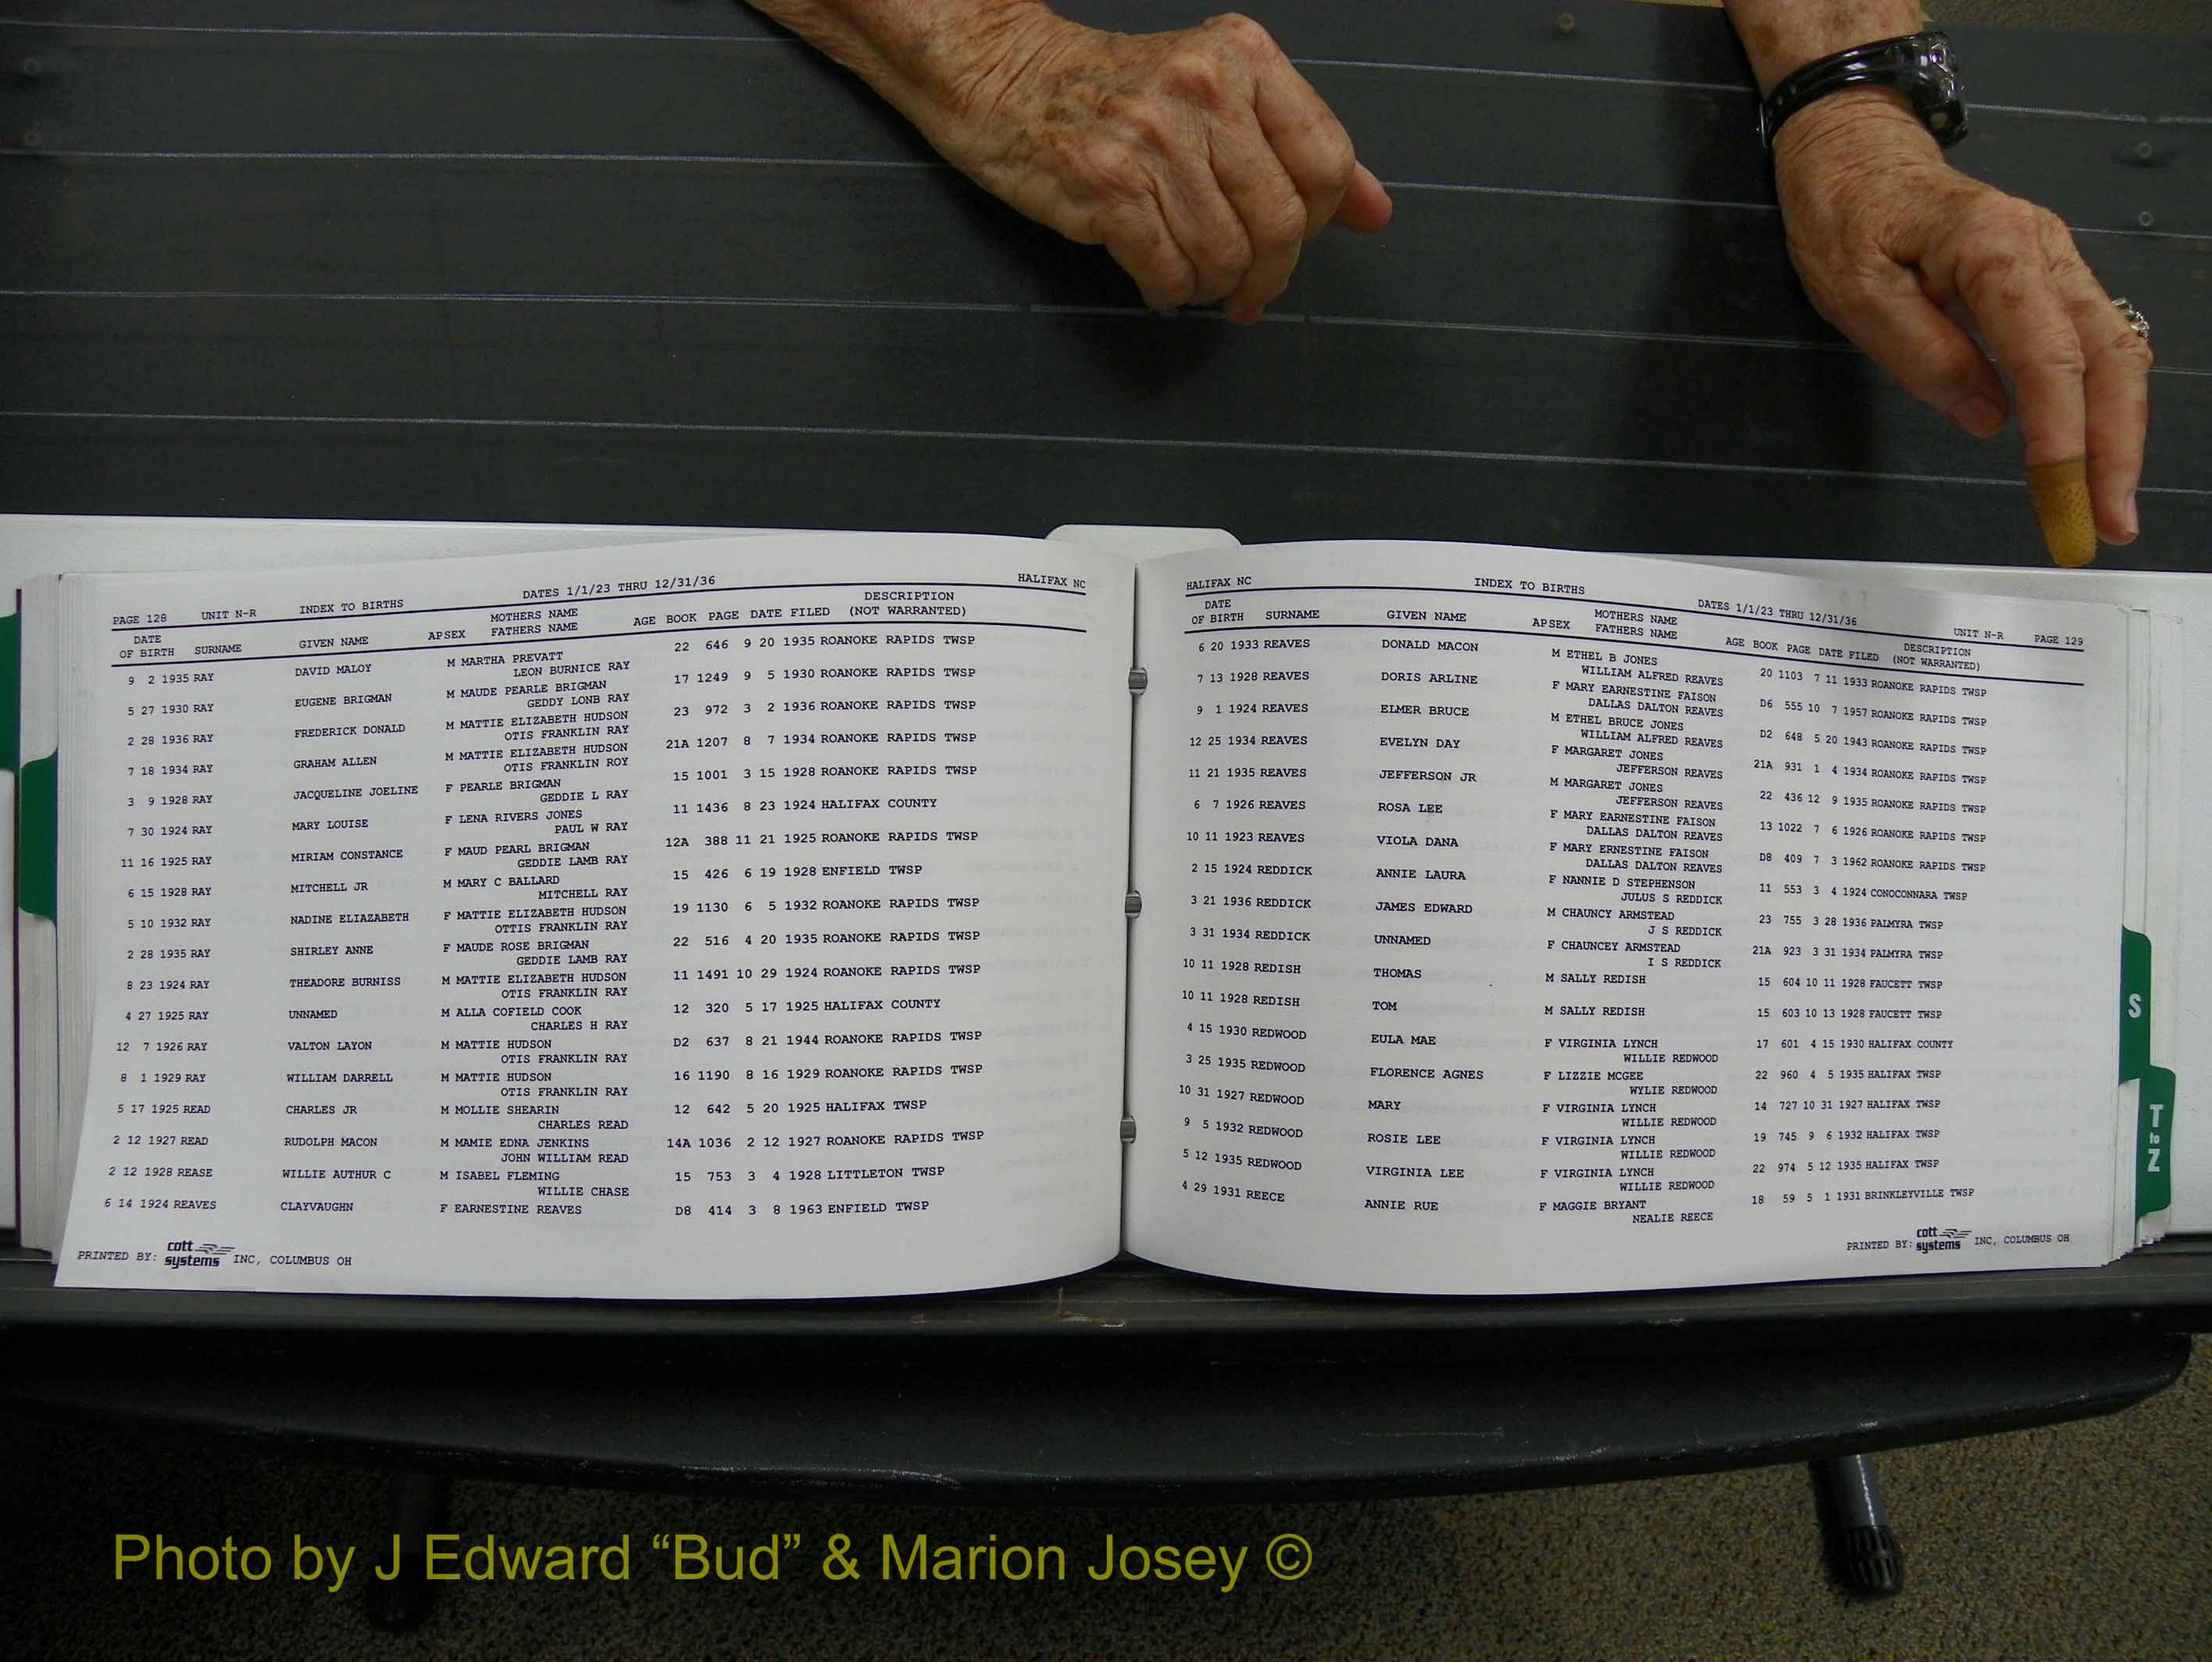 PAGE 128 UNIT N-R INDEX TO BIRTHS DATES 1/1/23 THRU 12/31/36 HALIFAX NC
DATE OF BIRTH SURNAME GIVEN NAME APSEX MOTHERS NAME FATHERS NAME AGE BOOK PAGE DATE FILED DESCRIPTION (NOT WARRANTED)
9 2 1935 RAY DAVID MALOY M MARTHA PREVATT 22 646 9 20 1935 ROANOKE RAPIDS TWSP
LEON BURNICE RAY
5 27 1930 RAY EUGENE BRIGMAN M MAUDE PEARLE BRIGMAN 17 1249 9 5 1930 ROANOKE RAPIDS TWSP
GEDDY LONB RAY
2 28 1936 RAY FREDERICK DONALD M MATTIE ELIZABETH HUDSON 23 972 3 2 1936 ROANOKE RAPIDS TWSP
OTIS FRANKLIN RAY
7 18 1934 RAY GRAHAM ALLEN M MATTIE ELIZABETH HUDSON 21A 1207 8 7 1934 ROANOKE RAPIDS TWSP
OTIS FRANKLIN ROY
3 9 1928 RAY JACQUELINE JOELINE F PEARLE BRIGMAN 15 1001 3 15 1928 ROANOKE RAPIDS TWSP
GEDDIE L RAY
7 30 1924 RAY MARY LOUISE F LENA RIVERS JONES 11 1436 8 23 1924 HALIFAX COUNTY
PAUL W RAY
11 16 1925 RAY MIRIAM CONSTANCE F MAUD PEARL BRIGMAN 12A 388 11 21 1925 ROANOKE RAPIDS TWSP
GEDDIE LAMB RAY
6 15 1928 RAY MITCHELL JR M MARY C BALLARD 15 426 6 19 1928 ENFIELD TWSP
MITCHELL RAY
5 10 1932 RAY NADINE ELIAZABETH F MATTIE ELIZABETH HUDSON 19 1130 6 5 1932 ROANOKE RAPIDS TWSP
OTTIS FRANKLIN RAY
2 28 1935 RAY SHIRLEY ANNE F MAUDE ROSE BRIGMAN 22 516 4 20 1935 ROANOKE RAPIDS TWSP
GEDDIE LAMB RAY
8 23 1924 RAY THEADORE BURNISS M MATTIE ELIZABETH HUDSON 11 1491 10 29 1924 ROANOKE RAPIDS TWSP
OTIS FRANKLIN RAY
4 27 1925 RAY UNNAMED M ALLA COFIELD COOK 12 320 5 17 1925 HALIFAX COUNTY
CHARLES H RAY
12 7 1926 RAY VALTON LAYON M MATTIE HUDSON D2 637 8 21 1944 ROANOKE RAPIDS TWSP
OTIS FRANKLIN RAY
8 1 1929 RAY WILLIAM DARRELL M MATTIE HUDSON 16 1190 8 16 1929 ROANOKE RAPIDS TWSP
OTIS FRANKLIN RAY
5 17 1925 READ CHARLES JR M MOLLIE SHEARIN 12 642 5 20 1925 HALIFAX TWSP
CHARLES READ
2 12 1927 READ RUDOLPH MACON M MAMIE EDNA JENKINS 14A 1036 2 12 1927 ROANOKE RAPIDS TWSP
JOHN WILLIAM READ
2 12 1928 REASE WILLIE AUTHUR C M ISABEL FLEMING 15 753 3 4 1928 LITTLETON TWSP
WILLIE CHASE
6 14 1924 REAVES CLAYVAUGHN F EARNESTINE REAVES D8 414 3 8 1963 ENFIELD TWSP
PRINTED BY: cott systems INC, COLUMBUS OH
HALIFAX NC INDEX TO BIRTHS DATES 1/1/23 THRU 12/31/36 UNIT N-R PAGE 129
DATE OF BIRTH SURNAME GIVEN NAME APSEX MOTHERS NAME FATHERS NAME AGE BOOK PAGE DATE FILED DESCRIPTION (NOT WARRANTED)
6 20 1933 REAVES DONALD MACON M ETHEL B JONES 20 1103 7 11 1933 ROANOKE RAPIDS TWSP
WILLIAM ALFRED REAVES
7 13 1928 REAVES DORIS ARLINE F MARY EARNESTINE FAISON D6 555 10 7 1957 ROANOKE RAPIDS TWSP
DALLAS DALTON REAVES
9 1 1924 REAVES ELMER BRUCE M ETHEL BRUCE JONES D2 648 5 20 1943 ROANOKE RAPIDS TWSP
WILLIAM ALFRED REAVES
12 25 1934 REAVES EVELYN DAY F MARGARET JONES 21A 931 1 4 1934 ROANOKE RAPIDS TWSP
JEFFERSON REAVES
11 21 1935 REAVES JEFFERSON JR M MARGARET JONES 22 436 12 9 1935 ROANOKE RAPIDS TWSP
JEFFERSON REAVES
6 7 1926 REAVES ROSA LEE F MARY EARNESTINE FAISON 13 1022 7 6 1926 ROANOKE RAPIDS TWSP
DALLAS DALTON REAVES
10 11 1923 REAVES VIOLA DANA F MARY ERNESTINE FAISON D8 409 7 3 1962 ROANOKE RAPIDS TWSP
DALLAS DALTON REAVES
2 15 1924 REDDICK ANNIE LAURA F NANNIE D STEPHENSON 11 553 3 4 1924 CONOCONNARA TWSP
JULUS S REDDICK
3 21 1936 REDDICK JAMES EDWARD M CHAUNCY ARMSTEAD 23 755 3 28 1936 PALMYRA TWSP
J S REDDICK
3 31 1934 REDDICK UNNAMED F CHAUNCEY ARMSTEAD 21A 923 3 31 1934 PALMYRA TWSP
I S REDDICK
10 11 1928 REDISH THOMAS M SALLY REDISH 15 604 10 11 1928 FAUCETT TWSP
10 11 1928 REDISH TOM M SALLY REDISH 15 603 10 13 1928 FAUCETT TWSP
4 15 1930 REDWOOD EULA MAE F VIRGINIA LYNCH 17 601 4 15 1930 HALIFAX COUNTY
WILLIE REDWOOD
3 25 1935 REDWOOD FLORENCE AGNES F LIZZIE MCGEE 22 960 4 5 1935 HALIFAX TWSP
WYLIE REDWOOD
10 31 1927 REDWOOD MARY F VIRGINIA LYNCH 14 727 10 31 1927 HALIFAX TWSP
WILLIE REDWOOD
9 5 1932 REDWOOD ROSIE LEE F VIRGINIA LYNCH 19 745 9 6 1932 HALIFAX TWSP
WILLIE REDWOOD
5 12 1935 REDWOOD VIRGINIA LEE F VIRGINIA LYNCH 22 974 5 12 1935 HALIFAX TWSP
WILLIE REDWOOD
4 29 1931 REECE ANNIE RUE F MAGGIE BRYANT 18 59 5 1 1931 BRINKLEYVILLE TWSP
NEALIE REECE
PRINTED BY: cott systems INC, COLUMBUS OH
S
T to Z
Photo by J Edward “Bud” & Marion Josey ©